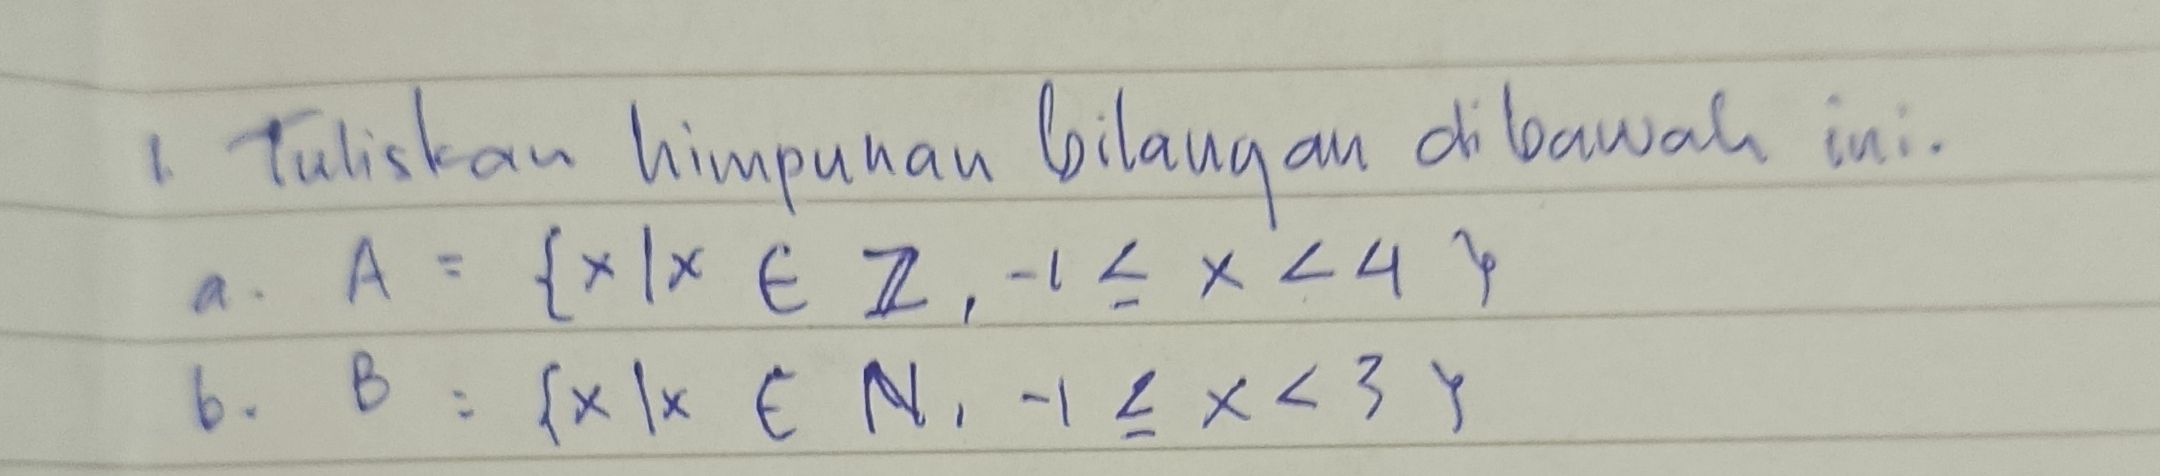 1. Tuliskan himpunan bilangan dibawah ini.
a. A = {x|x ∈ ℤ, -1 ≤ x < 4}
b. B = {x|x ∈ ℕ, -1 ≤ x < 3}